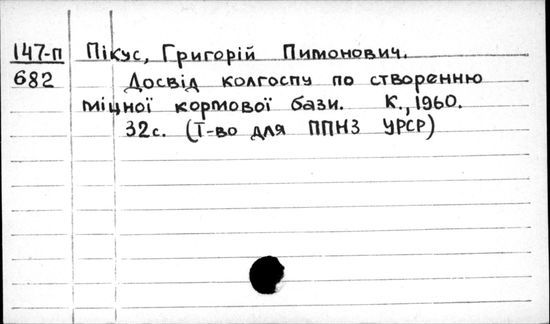 147-п Пікус, Григорій Пимонович.
682 Досвід колгоспу по створенню
міцної кормової бази. К., 1960.
32с. (Т-во для ППНЗ УРСР)